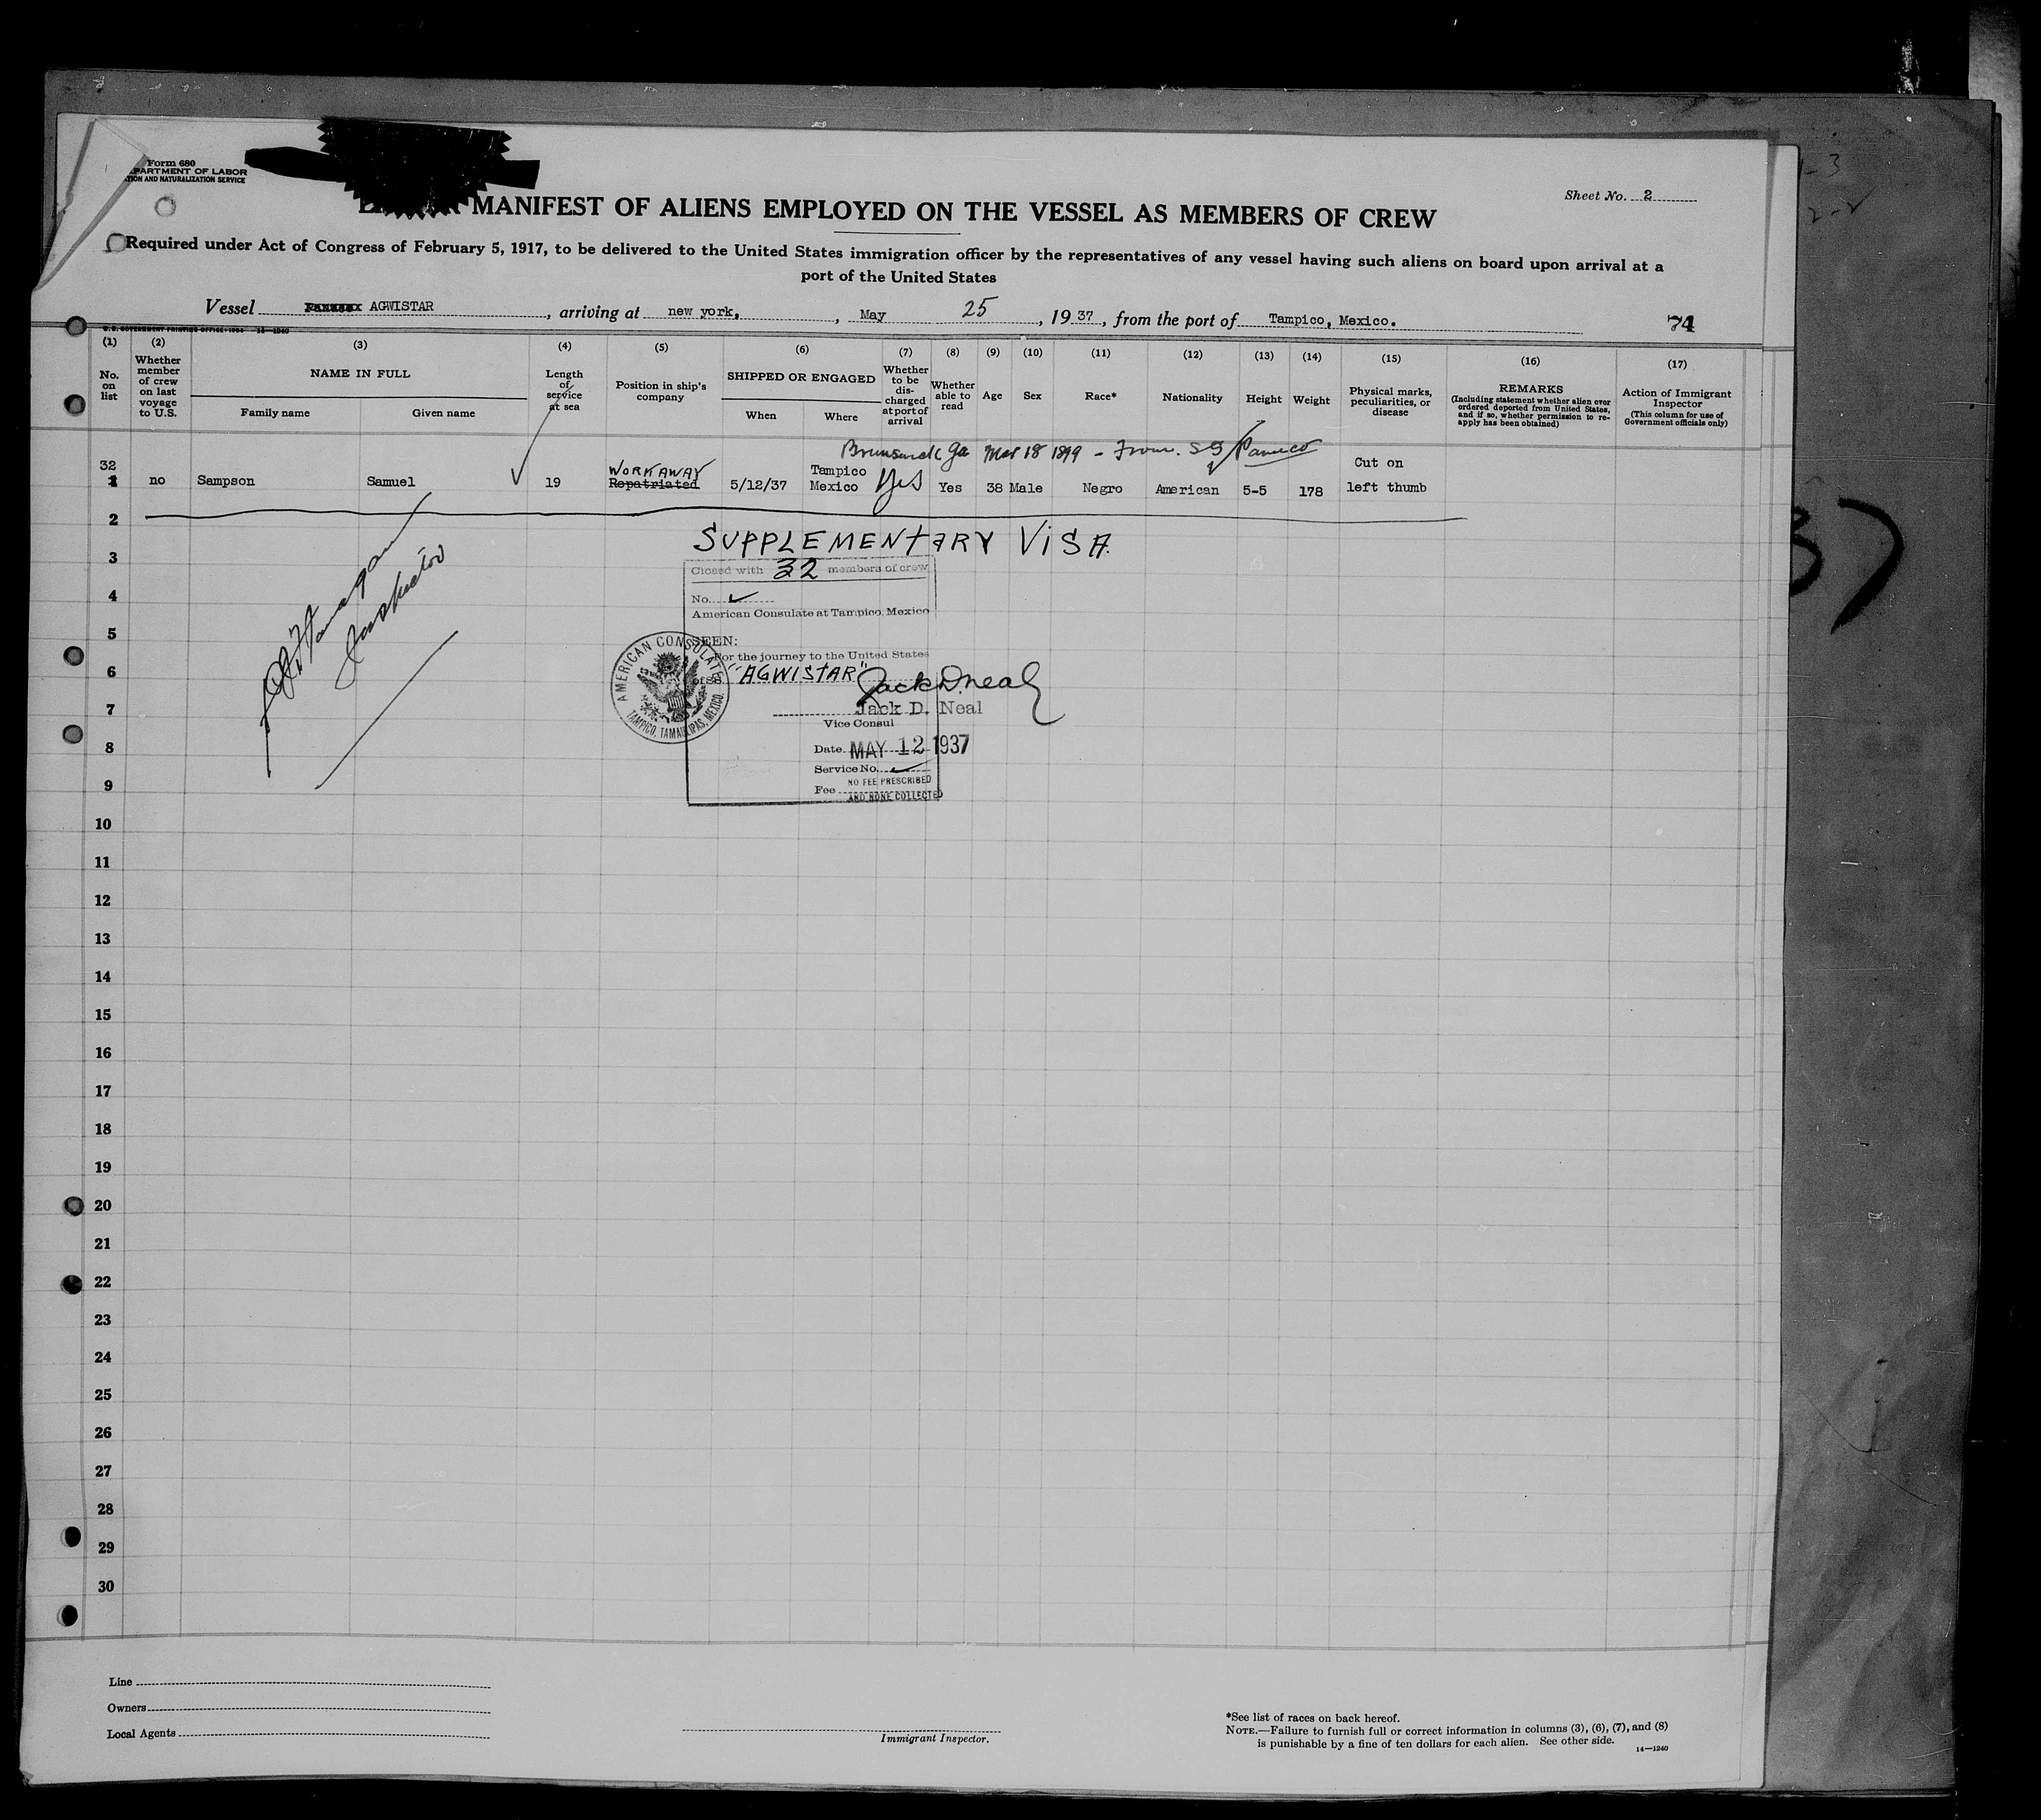 Form 680
PARTMENT OF LABOR
TION AND NATURALIZATION SERVICE
Sheet No. 2
MANIFEST OF ALIENS EMPLOYED ON THE VESSEL AS MEMBERS OF CREW
Required under Act of Congress of February 5, 1917, to be delivered to the United States immigration officer by the representatives of any vessel having such aliens on board upon arrival at a
port of the United States
Vessel AGWISTAR, arriving at new york, May 25, 1937, from the port of Tampico, Mexico.
U. S. GOVERNMENT PRINTING OFFICE: 1934 14—1240
(1) No. on list
(2) Whether member of crew on last voyage to U.S.
(3) NAME IN FULL
Family name Given name
(4) Length of service at sea
(5) Position in ship's company
(6) SHIPPED OR ENGAGED
When Where
(7) Whether to be dis-charged at port of arrival
(8) Whether able to read
(9) Age
(10) Sex
(11) Race*
(12) Nationality
(13) Height
(14) Weight
(15) Physical marks, peculiarities, or disease
(16) REMARKS
(Including statement whether alien ever ordered deported from United States, and if so, whether permission to re-apply has been obtained)
(17) Action of Immigrant Inspector
(This column for use of Government officials only)
Brunswick Ga Mar 18 1899 - From. SS Panuco
32 WORKAWAY Tampico Cut on
1 no Sampson Samuel 19 Repatriated 5/12/37 Mexico Yes Yes 38 Male Negro American 5-5 178 left thumb
2
SUPPLEMENTARY VISA.
3
Closed with 32 members of crew
4
No.
American Consulate at Tampico, Mexico
5
Inspector
SEEN:
For the journey to the United States
6
of SS. "AGWISTAR"
Jack D. Neal
AMERICAN CONSULATE
TAMPICO, TAMAULIPAS, MEXICO.
7
Jack D. Neal
Vice Consul
8
Date MAY 12 1937
Service No.
9
Fee NO FEE PRESCRIBED
AND NONE COLLECTED
10
11
12
13
14
15
16
17
18
19
20
21
22
23
24
25
26
27
28
29
30
Line
Owners
Local Agents
Immigrant Inspector.
*See list of races on back hereof.
NOTE.—Failure to furnish full or correct information in columns (3), (6), (7), and (8)
is punishable by a fine of ten dollars for each alien. See other side.
14—1240